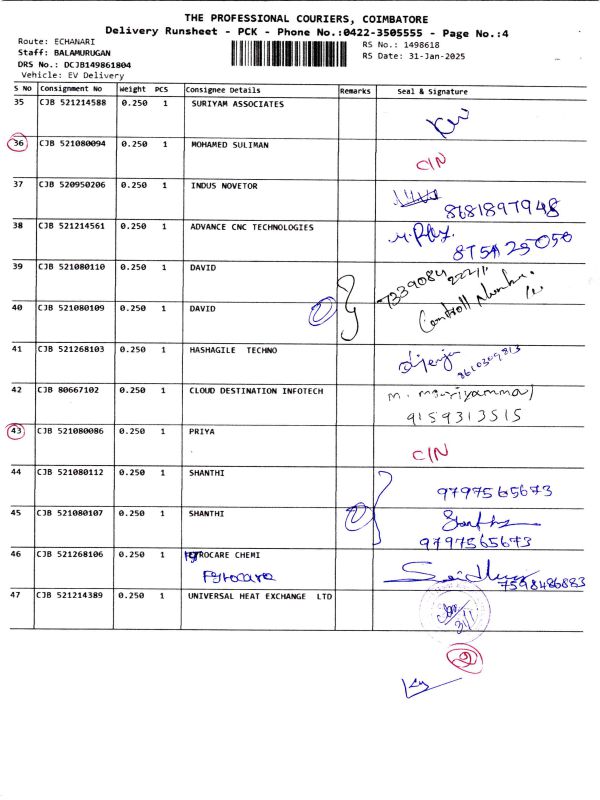 THE PROFESSIONAL COURIERS, COIMBATORE
Delivery Runsheet - PCK - Phone No.:0422-3505555 - Page No.:4
Route: ECHANARI
RS No.: 1498618
Staff: BALAMURUGAN
RS Date: 31-Jan-2025
DRS No.: DCJB149861804
Vehicle: EV Delivery
S No Consignment No Weight PCS Consignee Details Remarks Seal & Signature
35 CJB 521214588 0.250 1 SURIYAM ASSOCIATES
36 CJB 521080094 0.250 1 MOHAMED SULIMAN
C/N
37 CJB 520950206 0.250 1 INDUS NOVETOR
8681897948
38 CJB 521214561 0.250 1 ADVANCE CNC TECHNOLOGIES
39 CJB 521080110 0.250 1 DAVID
40 CJB 521080109 0.250 1 DAVID
2
41 CJB 521268103 0.250 1 HASHAGILE TECHNO
8610309813
42 CJB 80667102 0.250 1 CLOUD DESTINATION INFOTECH
m. mariyammal
9159313515
43 CJB 521080086 0.250 1 PRIYA
C/N
44 CJB 521080112 0.250 1 SHANTHI
9797565673
45 CJB 521080107 0.250 1 SHANTHI
2
9797565673
46 CJB 521268106 0.250 1 PYROCARE CHEMI
Pyrocare
7598486883
47 CJB 521214389 0.250 1 UNIVERSAL HEAT EXCHANGE LTD
31/1